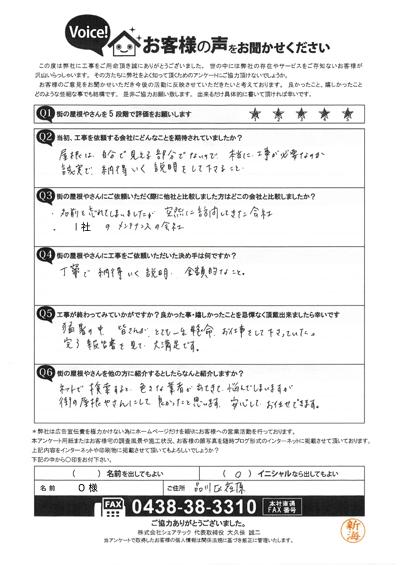 Voice! お客様の声をお聞かせください
この度は弊社に工事をご用命頂き誠にありがとうございました。世の中には弊社の存在やサービスをご存知ないお客様が
沢山いらっしゃいます。その方たちに弊社をよく知って頂くためのアンケートにご協力頂けないでしょうか。
お客様のご意見をお聞かせいただき今後の活動に反映させていただきたいと考えております。良かったこと、嬉しかったこと
どのような些細な事でも結構です。是非ご協力お願い致します。出来るだけ具体的に書いて頂ければ幸いです。
Q1 街の屋根やさんを5段階で評価をお願いします ★ ★ ★ ★ ★
Q2 当初、工事を依頼する会社にどんなことを期待されていましたか？
屋根は、自分で見える部分でないので、本当に工事が必要なのか
誠実で、納得いく説明をして下さること。
Q3 街の屋根やさんにご依頼いただく際に他社と比較しました方はどこの会社と比較しましたか？
・名前を忘れてしまいましたが 突然に訪問してきた会社
・1社のメンテナンスの会社
Q4 街の屋根やさんに工事をご依頼いただいた決め手は何ですか？
丁寧で納得いく説明、金額的なこと。
Q5 工事が終わってみていかがですか？良かった事・嬉しかったことを忌憚なく頂戴出来ましたら幸いです
猛暑の中、皆さんが、とても一生懸命、お仕事をして下さっていた。
完了報告書を見て、大満足です。
Q6 街の屋根やさんを他の方に紹介するとしたらなんと紹介しますか？
ネットで検索すると、色々な業者が出てきて、悩んでしまいますが
街の屋根やさんにして良かったと思います。安心して、お任せできます。
＊弊社は広告宣伝費を極力かけない為にホームページだけを頼りにお客様への営業活動を行っております。
本アンケート用紙またはお客様宅の調査風景や施工状況、お客様の顔写真を随時ブログ形式のインターネットに掲載させて頂いております。
上記内容をインターネットや印刷物に掲載させて頂いてもよろしいでしょうか？
下記の中から〇印をお付け下さい。
（　）名前を出してもよい （○）イニシャルなら出してもよい
名前 O様 ご住所 品川区荏原
FAX 0438-38-3310 本社直通 FAX番号
ご協力ありがとうございました。
株式会社シェアテック 代表取締役 大久保 誠二
当アンケートで取得したお客様の個人情報は関係法規に基づき厳正に管理いたします。
新海